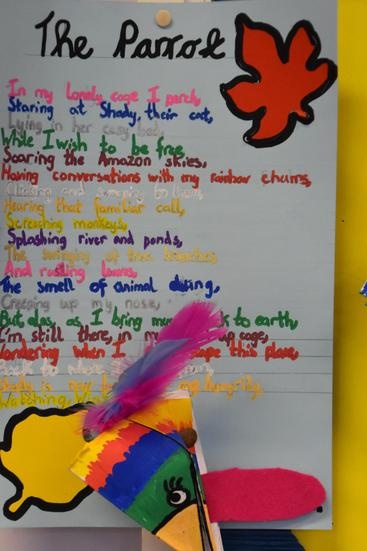 The Parrot
In my lonely cage I perch,
Staring at Shady, their cat,
Lying in her easy bed,
While I wish to be free,
Soaring the Amazon skies,
Having conversations with my rainbow chums,
Hearing that familiar call,
Screaching monkeys,
Splashing river and ponds,
The swinging of tree branches,
And rustling leaves,
The smell of animal
Creeping up my nose,
But, alas, as I bring my to earth,
I'm still there, in my up cage,
Wondering when I this place,
Back to where
Shady is now me hungrily,
Watching,